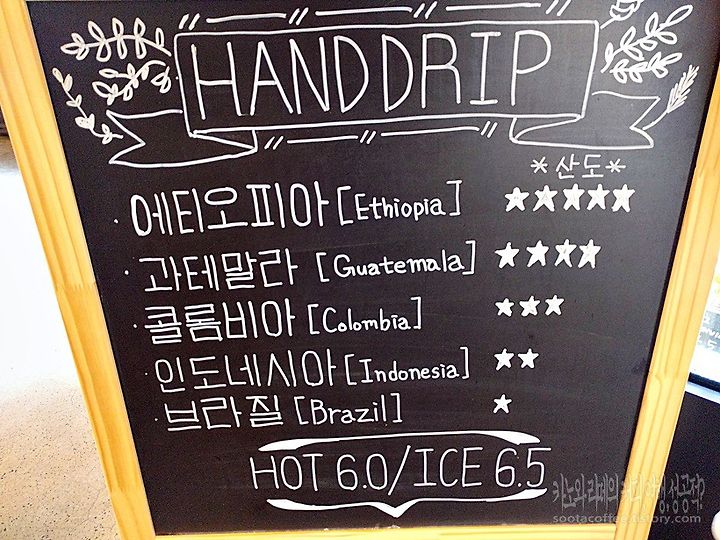 HAND DRIP
*산도*
·에티오피아 [Ethiopia] ★★★★★
·과테말라 [Guatemala] ★★★★
·콜롬비아 [Colombia] ★★★
·인도네시아 [Indonesia] ★★
·브라질 [Brazil] ★
HOT 6.0/ICE 6.5
sootacoffee.tistory.com